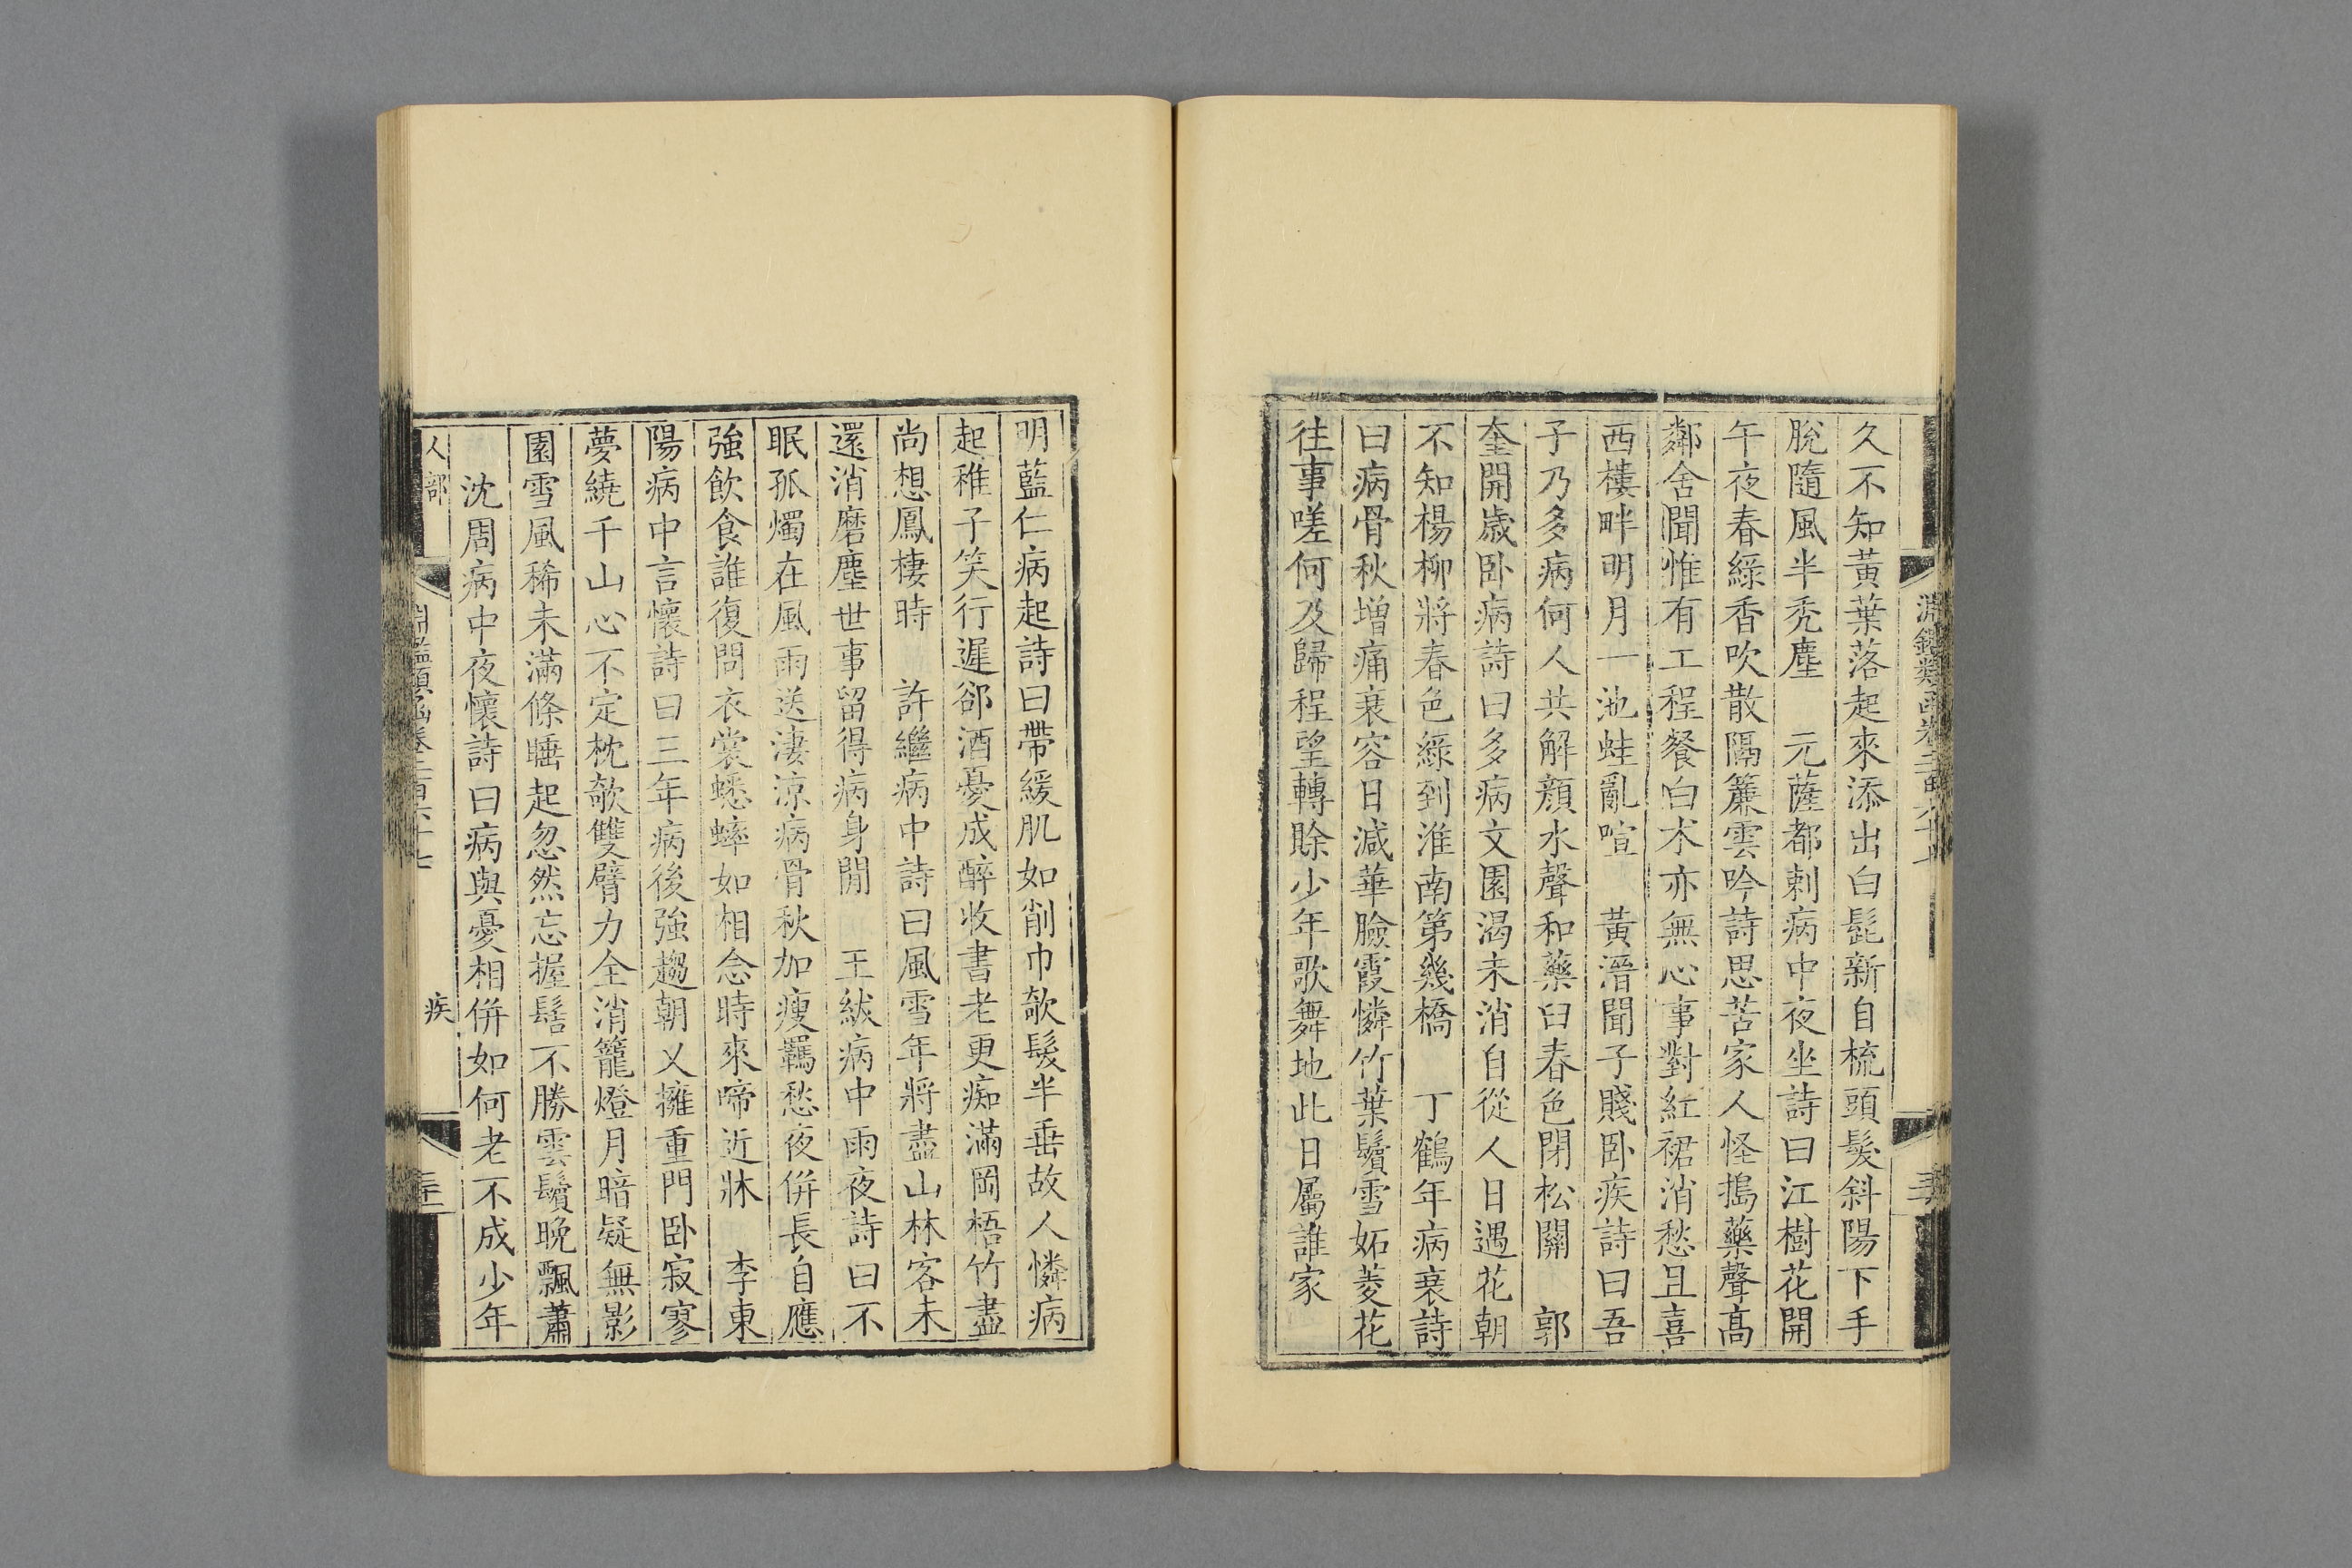 久不知黃葉落起來添出白髭新自梳頭髮斜陽下手
脫隨風半禿塵　元薩都剌病中夜坐詩曰江樹花開
午夜春綠香吹散隔簾雲吟詩思苦家人怪搗藥聲高
鄰舍聞惟有工程餐白朮亦無心事對紅裙消愁且喜
西樓畔明月一池蛙亂喧　黃溍聞子賤卧疾詩曰吾
子乃多病何人共解顏水聲和藥臼春色閉松關　郭
奎開歲卧病詩曰多病文園渴未消自從人日遇花朝
不知楊柳將春色綠到淮南第幾橋　丁鶴年病衰詩
曰病骨秋增痛衰容日減華臉霞憐竹葉鬢雪妬菱花
往事嗟何及歸程望轉賒少年歌舞地此日屬誰家
明藍仁病起詩曰帶緩肌如削巾欹髮半垂故人憐病
起稚子笑行遲郤酒憂成醉收書老更痴滿岡梧竹盡
尚想鳳棲時　許繼病中詩曰風雪年將盡山林客未
還消磨塵世事留得病身閒　王紱病中雨夜詩曰不
眠孤燭在風雨送淒涼病骨秋加瘦羈愁夜併長自應
強飲食誰復問衣裳蟋蟀如相念時來啼近牀　李東
陽病中言懷詩曰三年病後強趨朝乂擁重門卧寂寥
夢繞千山心不定枕欹雙臂力全消籠燈月暗疑無影
園雪風稀未滿條睡起忽然忘握髻不勝雲鬢晚飄蕭
沈周病中夜懷詩曰病與憂相併如何老不成少年
人部
疾